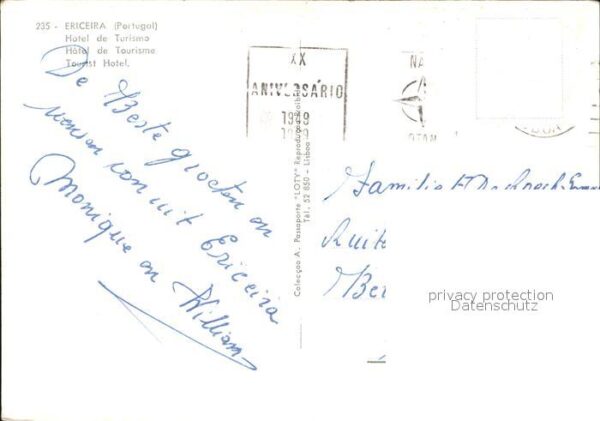 235 - ERICEIRA (Portugal)
Hotel de Turismo
Hôtel de Tourisme
Tourist Hotel.
De Beste groeten en
wensen van uit Ericeira
Monique en William
XX
ANIVERSÁRIO
1949
1969
NA
OTAN
Colecção A. Passaporte "LOTY"
Tél. 52 850 - Lisboa
Familie
Ruite
Ber
privacy protection
Datenschutz